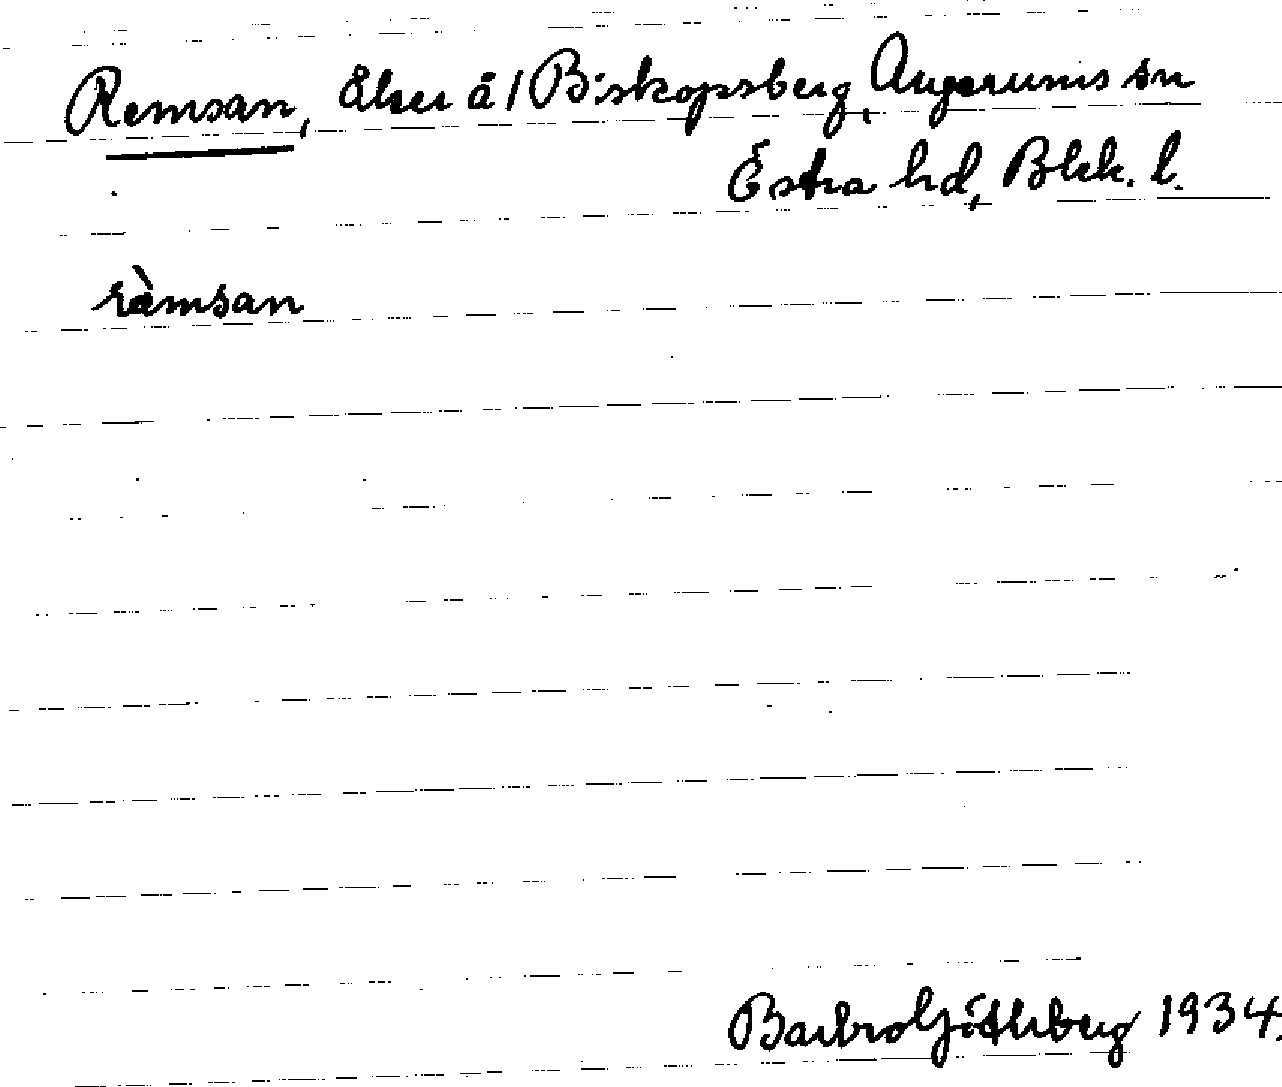 Remsan, åker å 1 Biskopsberg, Augerums sn
Östra hd, Blek. l.
ràmsan
Barbro Göthberg 1934.